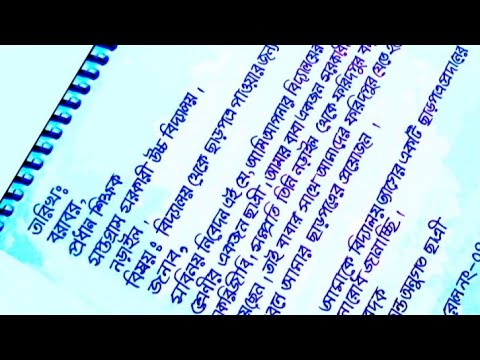 তারিখঃ
বরাবর,
প্রধান শিক্ষক
সরকারী উচ্চ বিদ্যালয়।
নড়াইল।
বিষয়ঃ বিদ্যালয় থেকে ছাড়পত্র পাওয়ার জন্য
জনাব,
সবিনয় নিবেদন এই যে, আমি আপনার বিদ্যালয়ের
শ্রেণীর একজন ছাত্রী। আমার বাবা একজন সরকারি
করিজীবি। সম্প্রতি তিনি নড়াইল থেকে ফরিদপুর
য়েছেন। তাই বাবার সাথে আমাদের ফরিদপুর যেতে
আমার ছাড়পত্রের প্রয়োজন।
আমাকে বিদ্যালয় ত্যাগের একটি ছাড়পত্র প্রদানের
জানাচ্ছি।
অনুগত ছাত্রী
রোল নং-